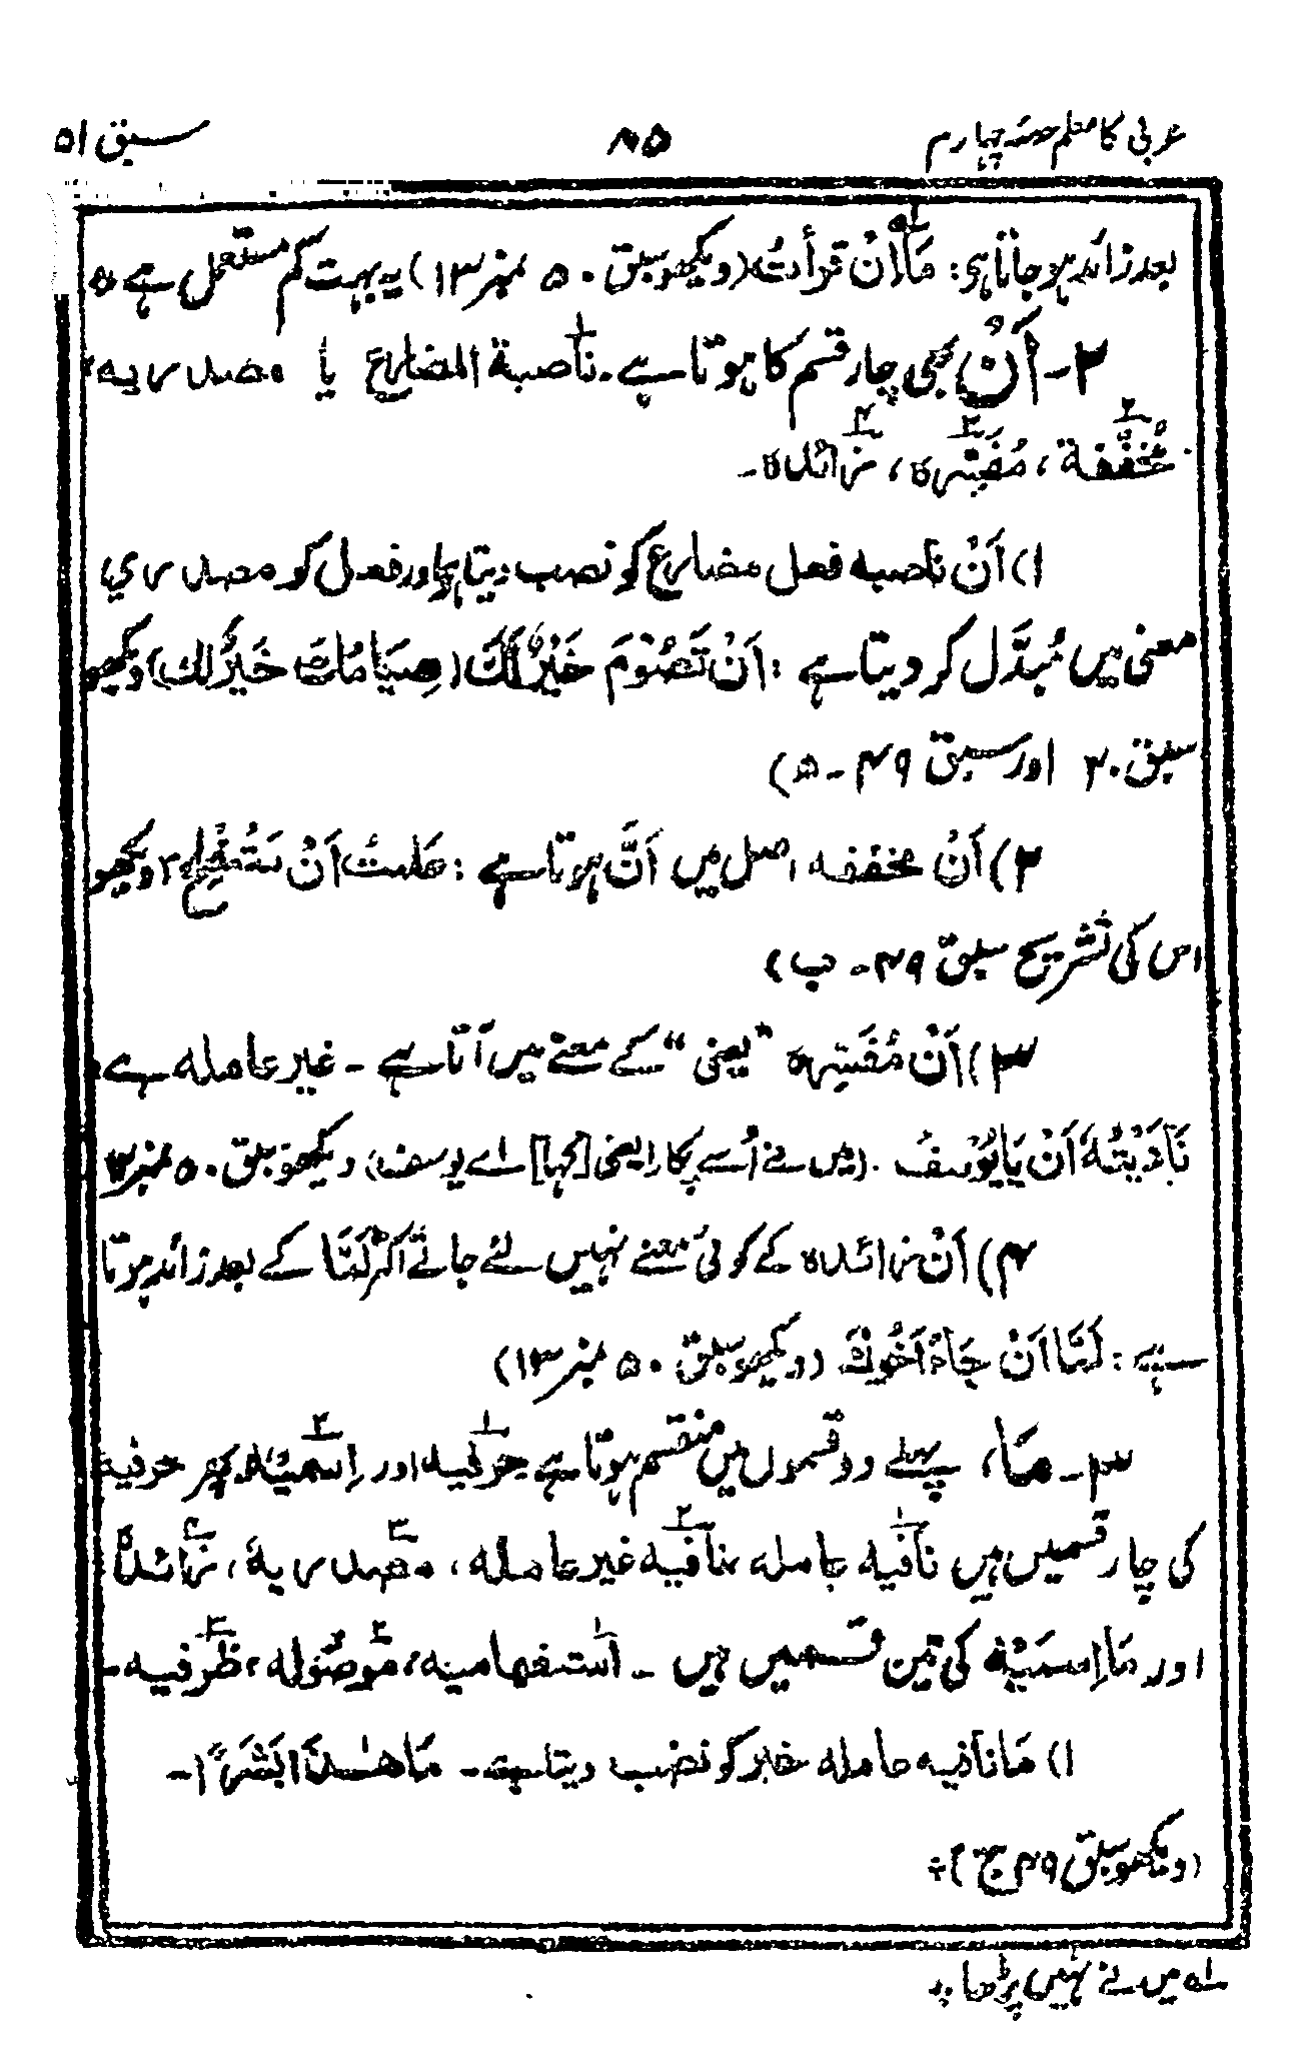 عربی کا معلم حصہ چہارم ۸۵ سبق ۵۱
بعد زائد ہو جاتا ہی: مَا اِنْ قرأتُ (دیکھو سبق ۵۰ نمبر ۱۳) یہ بہت کم مستعمل ہے
۲۔ اَنْ بھی چار قسم کا ہوتا ہے۔ ناصبة المضارع یا مصدریہ،
مُخَفَّفة، مُفَسِّرہ، زائدہ۔
۱) اَنْ ناصبہ فعل مضارع کو نصب دیتا ہی اور فعل کو مصدری
معنی میں مُبدَّل کر دیتا ہے: اَنْ تَصُوْمَ خَيْرٌ لَّكَ (صِيَامُكَ خَيْرٌ لك) دیکھو
سبق ۲۰ اور سبق ۴۹ - ۵)
۲) اَنْ مخففہ اصل میں اَنَّ ہوتا ہے: علمتُ اَنْ سَتُفْلِحُ (دیکھو
اس کی تشریح سبق ۴۹ - ب)
۳) اَنْ مُفَسِّرہ "یعنی" کے معنے میں آتا ہے - غیر عاملہ ہے
نَادَيْتُهُ اَنْ يَا يُوْسُفُ (میں نے اُسے پکارا یعنی [کہا] اے یوسف) دیکھو سبق ۵۰ نمبر
۴) اَنْ زائدہ کے کوئی معنے نہیں لئے جاتے اکثر لَمَّا کے بعد زائد ہوتا
ہے: لَمَّا اَنْ جَاءَ اَخُوْكَ (دیکھو سبق ۵۰ نمبر ۱۳)
۳۔ مَا، پہلے دو قسموں میں منقسم ہوتا ہے حرفیہ اور اِسمیّہ۔ پھر حرفیہ
کی چار قسمیں ہیں نافیہ عاملہ، نافیہ غیر عاملہ، مصدریہ، زائدہ
اور مَا اِسمیّہ کی تین قسمیں ہیں ۔ استفہامیہ، موصولہ، ظرفیہ۔
۱) مَا نافیہ عاملہ خبر کو نصب دیتا ہے۔ مَا هٰذَا بَشَرًا۔
(دیکھو سبق ۴۹ ج)
لہ میں نے نہیں پڑھا